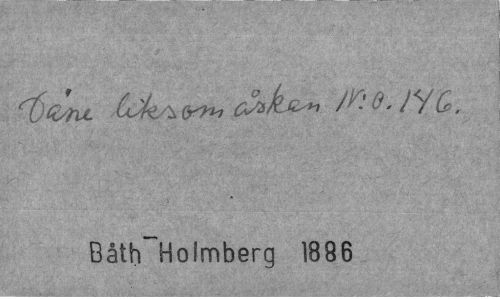 Dåne liksom åskan N:o. 146.
Båth-Holmberg 1886